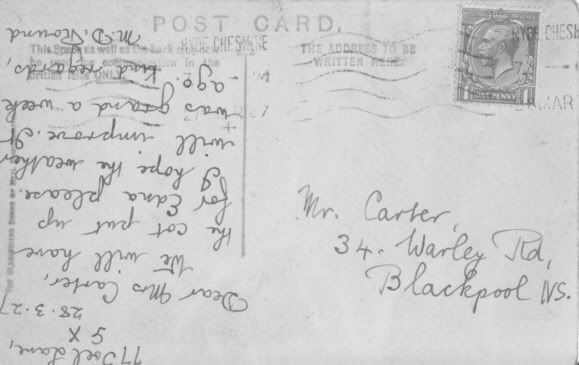 POST CARD.
This Space as well as the back may
communication in the
British Isles ONLY.
THE ADDRESS TO BE
WRITTEN HERE.
HYDE CHESHIRE
HYDE CHESH
MAR
ONE PENNY
Mr. Carter,
34. Warley Rd,
Blackpool NS.
77 Joel Lane,
5 X
28.3.27
Dear Mrs Carter,
We will have
the cot put up
for Edna please.
I hope the weather
will improve. It
was grand a week
ago.
Kind regards,
M. D. Round